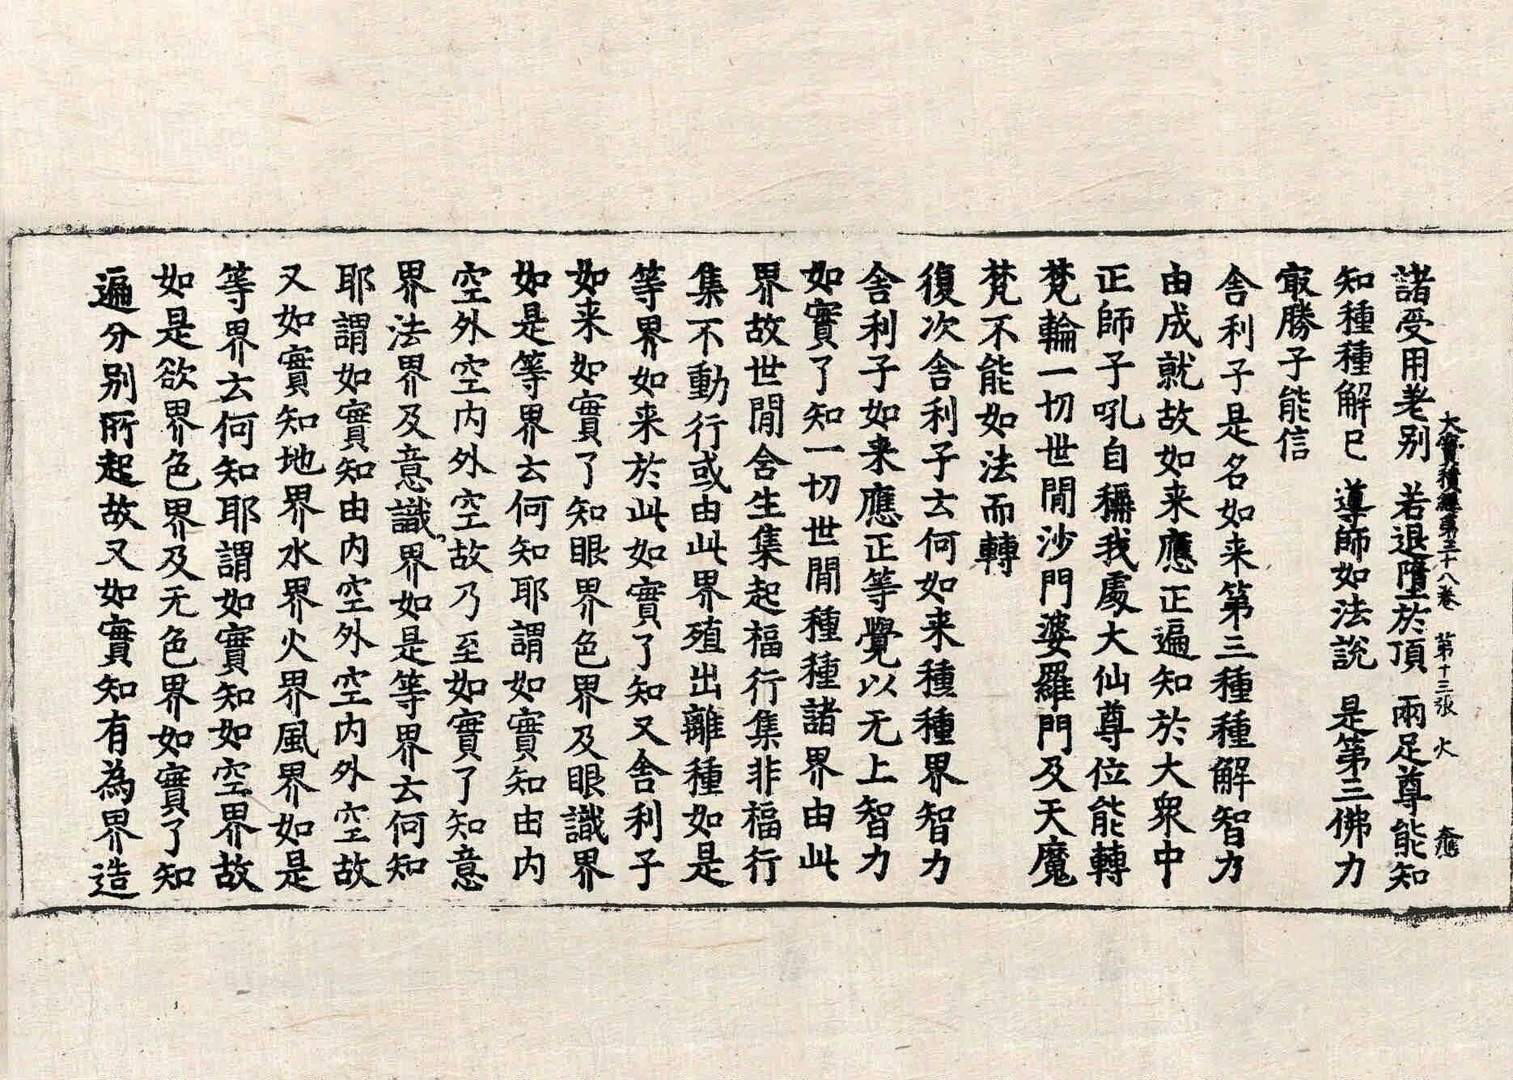 大寶積經第三十八卷　第十三張　火
諸受用差别　若退墮於頂　兩足尊能知
知種種解已　導師如法說　是第三佛力
㝡勝子能信
舍利子是名如来第三種種解智力
由成就故如来應正遍知於大衆中
正師子吼自稱我處大仙尊位能轉
梵輪一切世閒沙門婆羅門及天魔
梵不能如法而轉
復次舍利子云何如来種種界智力
舍利子如来應正等覺以无上智力
如實了知一切世閒種種諸界由此
界故世閒舍生集起福行集非福行
集不動行或由此界殖出離種如是
等界如来於此如實了知又舍利子
如来如實了知眼界色界及眼識界
如是等界云何知耶謂如實知由内
空外空内外空故乃至如實了知意
界法界及意識界如是等界云何知
耶謂如實知由内空外空内外空故
又如實知地界水界火界風界如是
等界云何知耶謂如實知如空界故
如是欲界色界及无色界如實了知
遍分别所起故又如實知有為界造